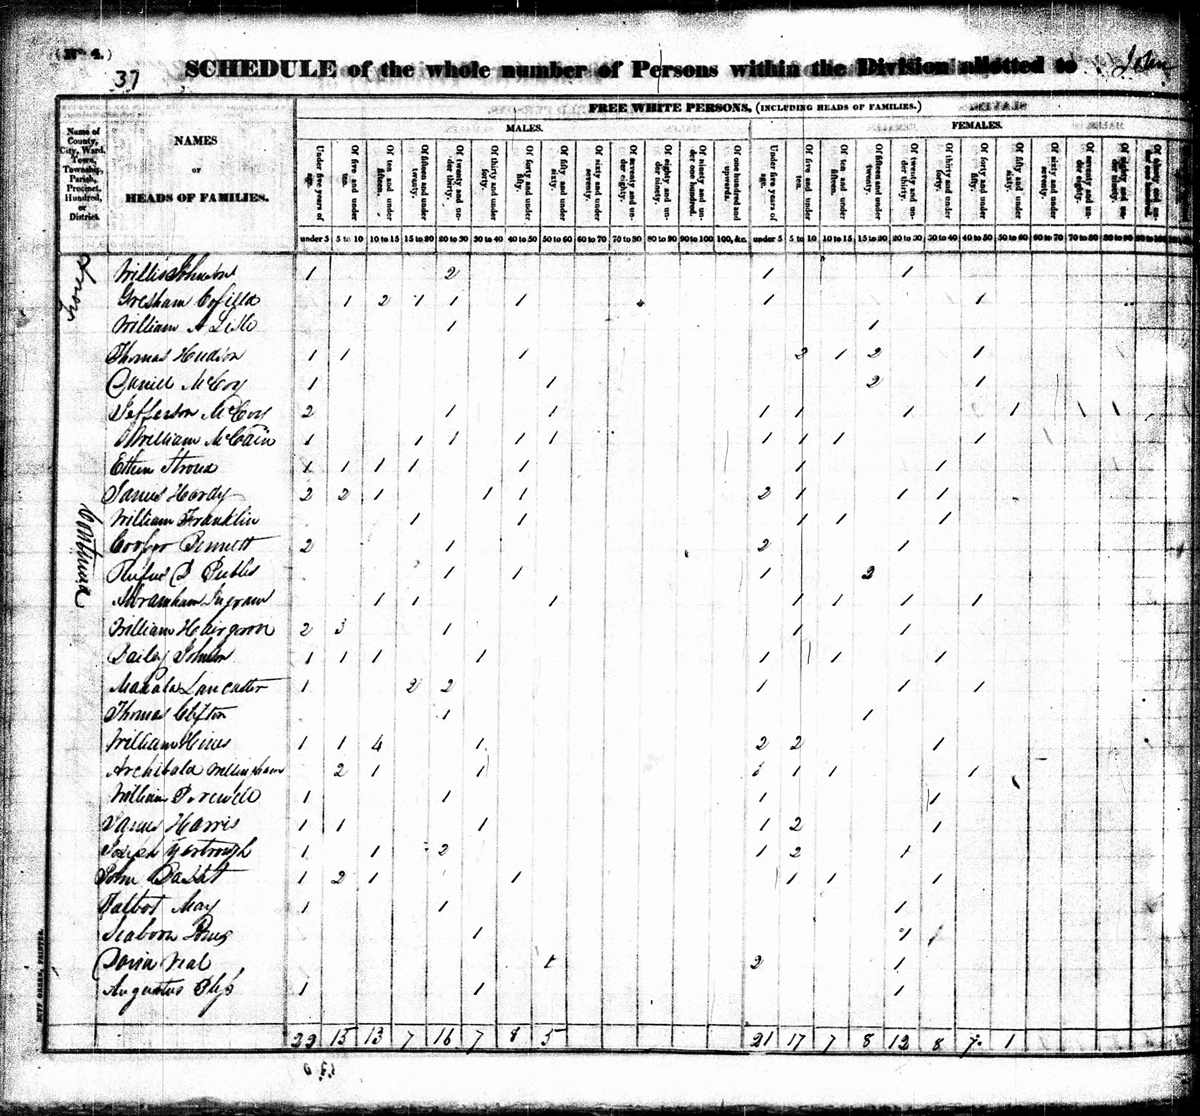 (No 4.)
37
SCHEDULE of the whole number of Persons within the Division allotted to John
FREE WHITE PERSONS, (INCLUDING HEADS OF FAMILIES.)
MALES. FEMALES.
Name of County, City, Ward, Town, Township, Parish, Precinct, Hundred, or District.
NAMES
OF
HEADS OF FAMILIES.
Under five years of age. Of five and under ten. Of ten and under fifteen. Of fifteen and under twenty. Of twenty and under thirty. Of thirty and under forty. Of forty and under fifty. Of fifty and under sixty. Of sixty and under seventy. Of seventy and under eighty. Of eighty and under ninety. Of ninety and under one hundred. Of one hundred and upwards. Under five years of age. Of five and under ten. Of ten and under fifteen. Of fifteen and under twenty. Of twenty and under thirty. Of thirty and under forty. Of forty and under fifty. Of fifty and under sixty. Of sixty and under seventy. Of seventy and under eighty. Of eighty and under ninety.
under 5 5 to 10 10 to 15 15 to 20 20 to 30 30 to 40 40 to 50 50 to 60 60 to 70 70 to 80 80 to 90 90 to 100 100, &c. under 5 5 to 10 10 to 15 15 to 20 20 to 30 30 to 40 40 to 50 50 to 60 60 to 70 70 to 80 80 to 90 90 to 100
Willis 1 2 1 1
Gresham Cofield 1 2 1 1 1 1 1
William A Lisle 1 1
Thomas Hudson 1 1 1 2 1 2 1
Daniel McCoy 1 1 2 1
Jefferson McCoy 2 1 1 1 1 1 1 1 1
William McCain 1 1 1 1 1 1 1 1 1
Ethen Stroud 1 1 1 1 1 1 1
James Hardy 2 2 1 1 1 2 1 1 1
William Franklin 1 1 1 1 1
Cooper Bennett 2 1 2 1
Rufus Peebles 1 1 1 2
Abramham Ingram 1 1 1 1 1 1 1
William Hairgrove 2 3 1 1 1
Bailey 1 1 1 1 1 1 1
Lancaster 1 2 2 1 1 1
Thomas Clifton 1 1
William Hines 1 1 4 1 2 2 1
Archibald Willingham 2 1 1 1 1 1 1
William 1 1 1 1
James Harris 1 1 1 1 2 1
Joseph Yarbrough 1 1 2 1 2 1
John 1 2 1 1 1 1 1
Talbot May 1 1 1
Seaborn 1 1
Neal 1 2 1
Augustus 1 1 1
22 15 13 7 16 7 8 5 21 17 7 8 12 8 7 1